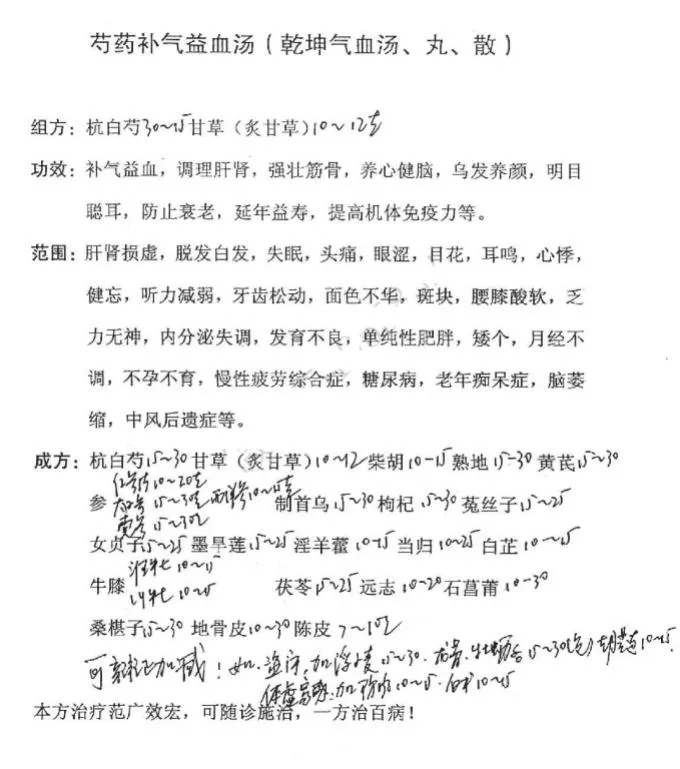 芍药补气益血汤（乾坤气血汤、丸、散）
组方：杭白芍30～15甘草（炙甘草）10～12克
功效：补气益血，调理肝肾，强壮筋骨，养心健脑，乌发养颜，明目
聪耳，防止衰老，延年益寿，提高机体免疫力等。
范围：肝肾损虚，脱发白发，失眠，头痛，眼涩，目花，耳鸣，心悸，
健忘，听力减弱，牙齿松动，面色不华，斑块，腰膝酸软，乏
力无神，内分泌失调，发育不良，单纯性肥胖，矮个，月经不
调，不孕不育，慢性疲劳综合症，糖尿病，老年痴呆症，脑萎
缩，中风后遗症等。
成方：杭白芍15～30甘草（炙甘草）10～12柴胡10-15熟地15-30黄芪15～30
红参 10～20克
参 太子参 15～30克 西洋参10～15克 制首乌15～30枸杞15～30菟丝子15～25
党参 15～30
女贞子15～25墨旱莲15～25淫羊藿10-15当归10～25白芷10～15
淮牛七10～15
牛膝 茯苓15～25远志10-20石菖蒲10-30
川牛七10～15
桑椹子15～30地骨皮10～30陈皮7～10
加减！如：盗汗，加浮麦15～30．龙骨．牡蛎各15～30 10～15
体虚 加 10～15．白术10～15
本方治疗范广效宏，可随诊施治，一方治百病！